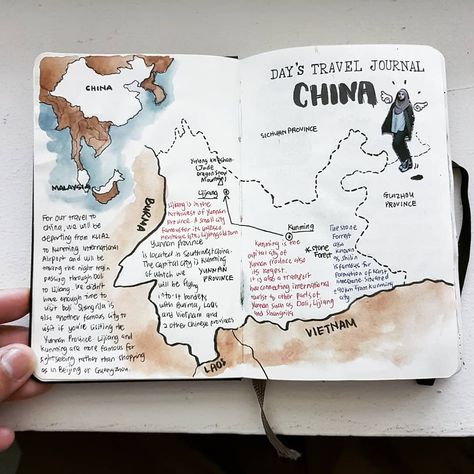 CHINA
MALAYSIA
For our travel to
China, we will be
departing from KLIA2
to Kunming International
Airport and will be
taking the night train
passing through Dali
to Lijiang. We didn't
have enough time to
visit Dali. Shangrila is
also another famous city to
visit if you're visiting the
Yunnan Province. Lijiang and
Kunming are more famous for
sightseeing rather than shopping
as in Beijing or Guangzhou.
BURMA
(Jade
Dragon Snow
Mountain)
Lijiang
Lijiang is in the
Northwest of Yunnan
Province. A small city
famous for its
Yunnan Province
is located in Southwest China.
The capital city is Kunming
of which we
will be
flying
into. It borders
with Burma, Laos
and Vietnam and
2 other Chinese provinces
YUNNAN
PROVINCE
LAOS
DAY'S TRAVEL JOURNAL
CHINA
SICHUAN PROVINCE
GUIZHOU
PROVINCE
Kunming
Kunming is the
capital city of
Yunnan Province also
its largest.
It is also a transport
hub connecting international
tourist to other parts of
Yunnan such as Dali, Lijiang
and Shangrila
Stone
Forest
The Stone
Forest
also
known
as Shilin
is famous for
formations of
situated
from Kunming
city
VIETNAM